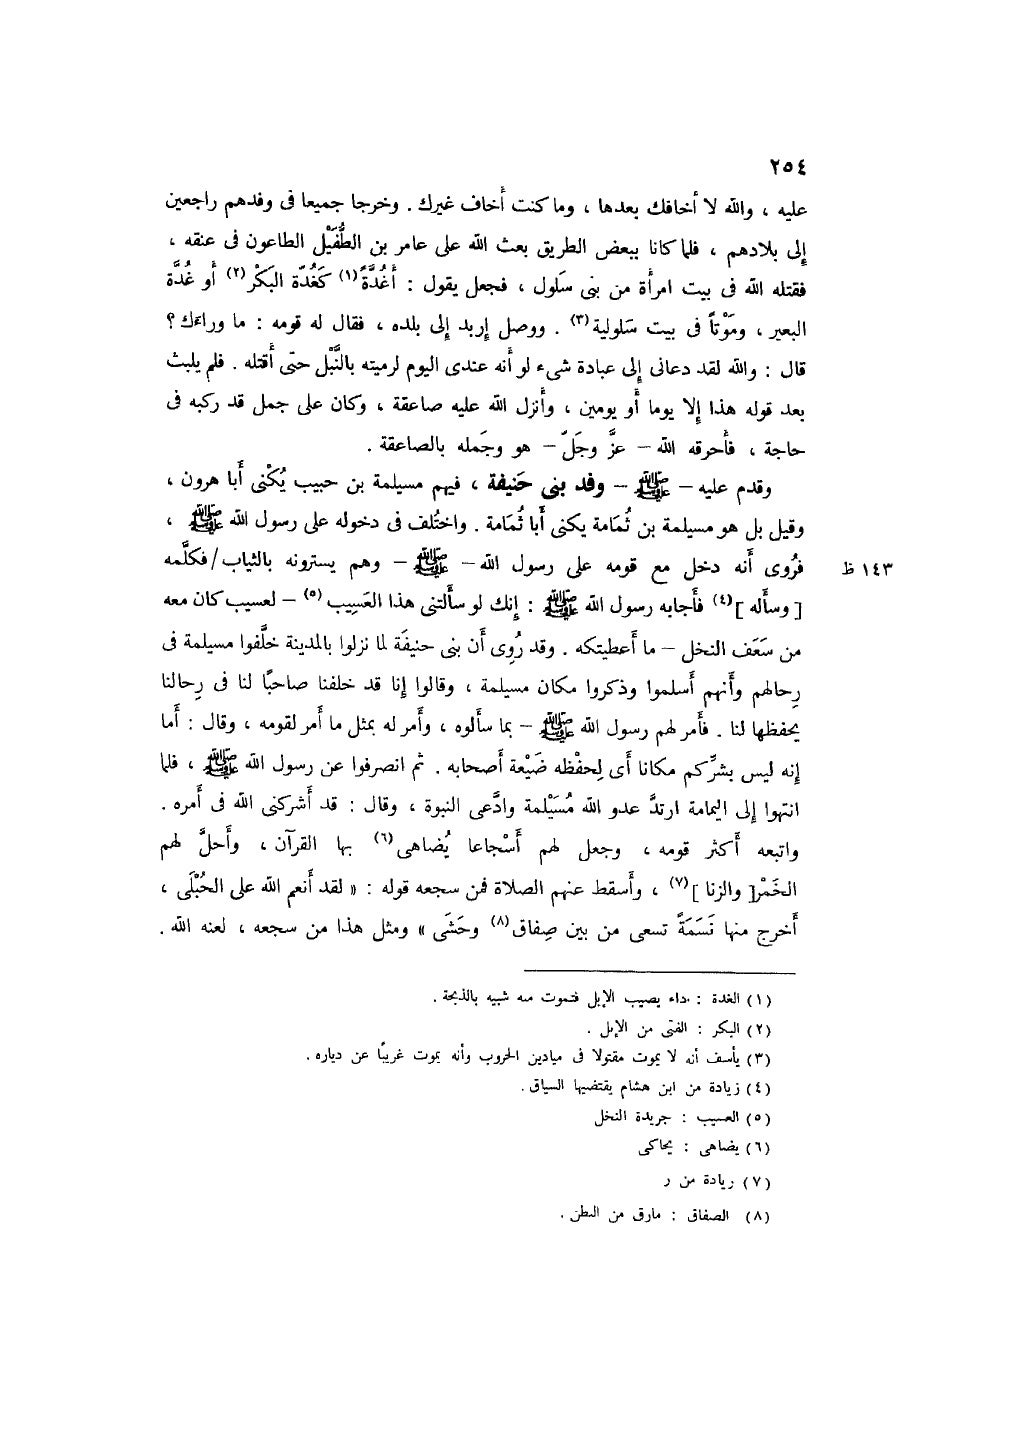 ٢٥٤
عليه ، والله لا أخافك بعدها ، وما كنت أخاف غيرك . وخرجا جميعا فى وفدهم راجعين
إلى بلادهم ، فلما كانا ببعض الطريق بعث الله على عامر بن الطُّفَيْل الطاعون فى عنقه ،
فقتله الله فى بيت امرأة من بنى سَلول ، فجعل يقول : أَغُدَّةً(١) كَغُدّة البَكْر(٢) أَو غُدَّة
البعير ، ومَوْتاً فى بيت سَلولية(٣) . ووصل إربد إلى بلده ، فقال له قومه : ما وراءك ؟
قال : والله لقد دعانى إلى عبادة شىء لو أنه عندى اليوم لرميته بالنَّبْل حتّى أَقتله . فلم يلبث
بعد قوله هذا إلا يوما أو يومين ، وأنزل الله عليه صاعقة ، وكان على جمل قد ركبه فى
حاجة ، فأحرقه الله – عزَّ وجَلّ – هو وجَمله بالصاعقة .
وقدم عليه – ﷺ – وفد بنى حَنيفة ، فيهم مسيلمة بن حبيب يُكْنى أَبا هرون ،
وقيل بل هو مسيلمة بن ثُمَامة يكنى أَبا ثُمَامة . واختُلف فى دخوله على رسول الله ﷺ ،
فرُوى أَنه دخل مع قومه على رسول الله – ﷺ – وهم يسترونه بالثياب/فكلَّمه
١٤٣ ظ
[ وسأَله ](٤) فأَجابه رسول الله ﷺ : إِنك لو سأَلتنى هذا العَسِيب(٥) – لعسيب كان معه
من سَعَف النخل – ما أَعطيتكه . وقد رُوِى أَن بنى حنيفَة لما نزلوا بالمدينة خلَّفوا مسيلمة فى
رِحالهم وأَنهم أَسلموا وذكروا مكان مسيلمة ، وقالوا إِنا قد خلفنا صاحبًا لنا فى رِحالنا
يحفظها لنا . فأَمر لهم رسول الله ﷺ – بما سأَلوه ، وأَمر له بمثل ما أَمر لقومه ، وقال : أَما
إِنه ليس بشرِّكم مكانا أَى لِحفْظه ضَيْعة أَصحابه . ثم انصرفوا عن رسول الله ﷺ ، فلما
انتهوا إِلى اليمامة ارتدَّ عدو الله مُسَيْلمة وادَّعى النبوة ، وقال : قد أَشركنى الله فى أَمره .
واتبعه أَكثر قومه ، وجعل لهم أَسْجاعا يُضاهى(٦) بها القرآن ، وأَحلَّ لهم
الخَمْر[ والزنا ](٧) ، وأَسقط عنهم الصلاة فمن سجعه قوله : « لقد أَنعم الله على الحُبْلَى ،
أَخرج منها نَسَمَةً تسعى من بين صِفاق(٨) وحَشَى » ومثل هذا من سجعه ، لعنه الله .
(١) الغدة : داء يصيب الإبل فتموت منه شبيه بالذبحة .
(٢) البكر : الفتى من الإبل .
(٣) يأسف أنه لا يموت مقتولا فى ميادين الحروب وأنه يموت غريبًا عن دياره .
(٤) زيادة من ابن هشام يقتضيها السياق .
(٥) العسيب : جريدة النخل
(٦) يضاهى : يحاكى
(٧) زيادة من ر
(٨) الصفاق : مارق من البطن .